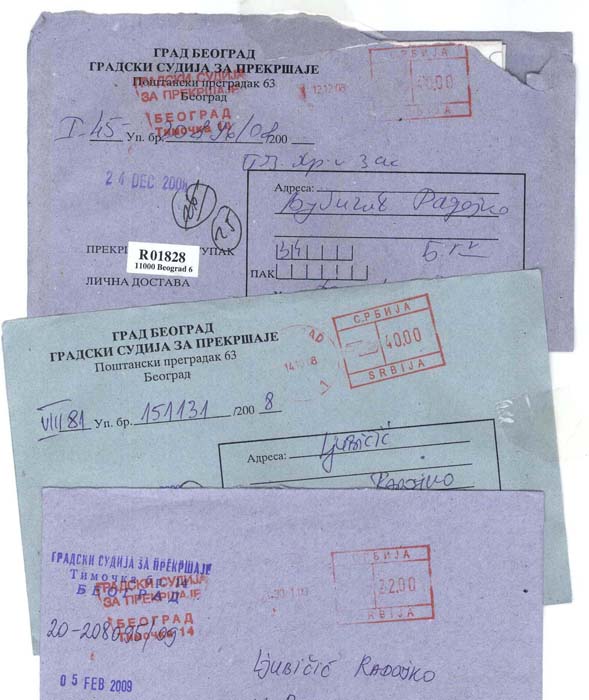 ГРАД БЕОГРАД
ГРАДСКИ СУДИЈА ЗА ПРЕКРШАЈЕ
Поштански преградак 63
Београд
ГРАДСКИ СУДИЈА
ЗА ПРЕКРШАЈЕ
БЕОГРАД
Тимочка 14
12.12.08
СРБИЈА
40.00
SRBIJA
I-45 Уп. бр. /08/200
24 DEC 2008
25
Адреса:
Љубичић Радојко
ПАК
R 01828
11000 Beograd 6
ЛИЧНА ДОСТАВА
ГРАД БЕОГРАД
ГРАДСКИ СУДИЈА ЗА ПРЕКРШАЈЕ
Поштански преградак 63
Београд
СРБИЈА
40.00
SRBIJA
VIII/81 Уп. бр. 151131 /200 8
Адреса: Ljubičić
Radojko
ГРАДСКИ СУДИЈА ЗА ПРЕКРШАЈЕ
Тимочка бр. 14
БЕОГРАД
ГРАДСКИ СУДИЈА
ЗА ПРЕКРШАЈЕ
БЕОГРАД
Тимочка 14
СРБИЈА
22.00
SRBIJA
Ljubičić Radojko
05 FEB 2009